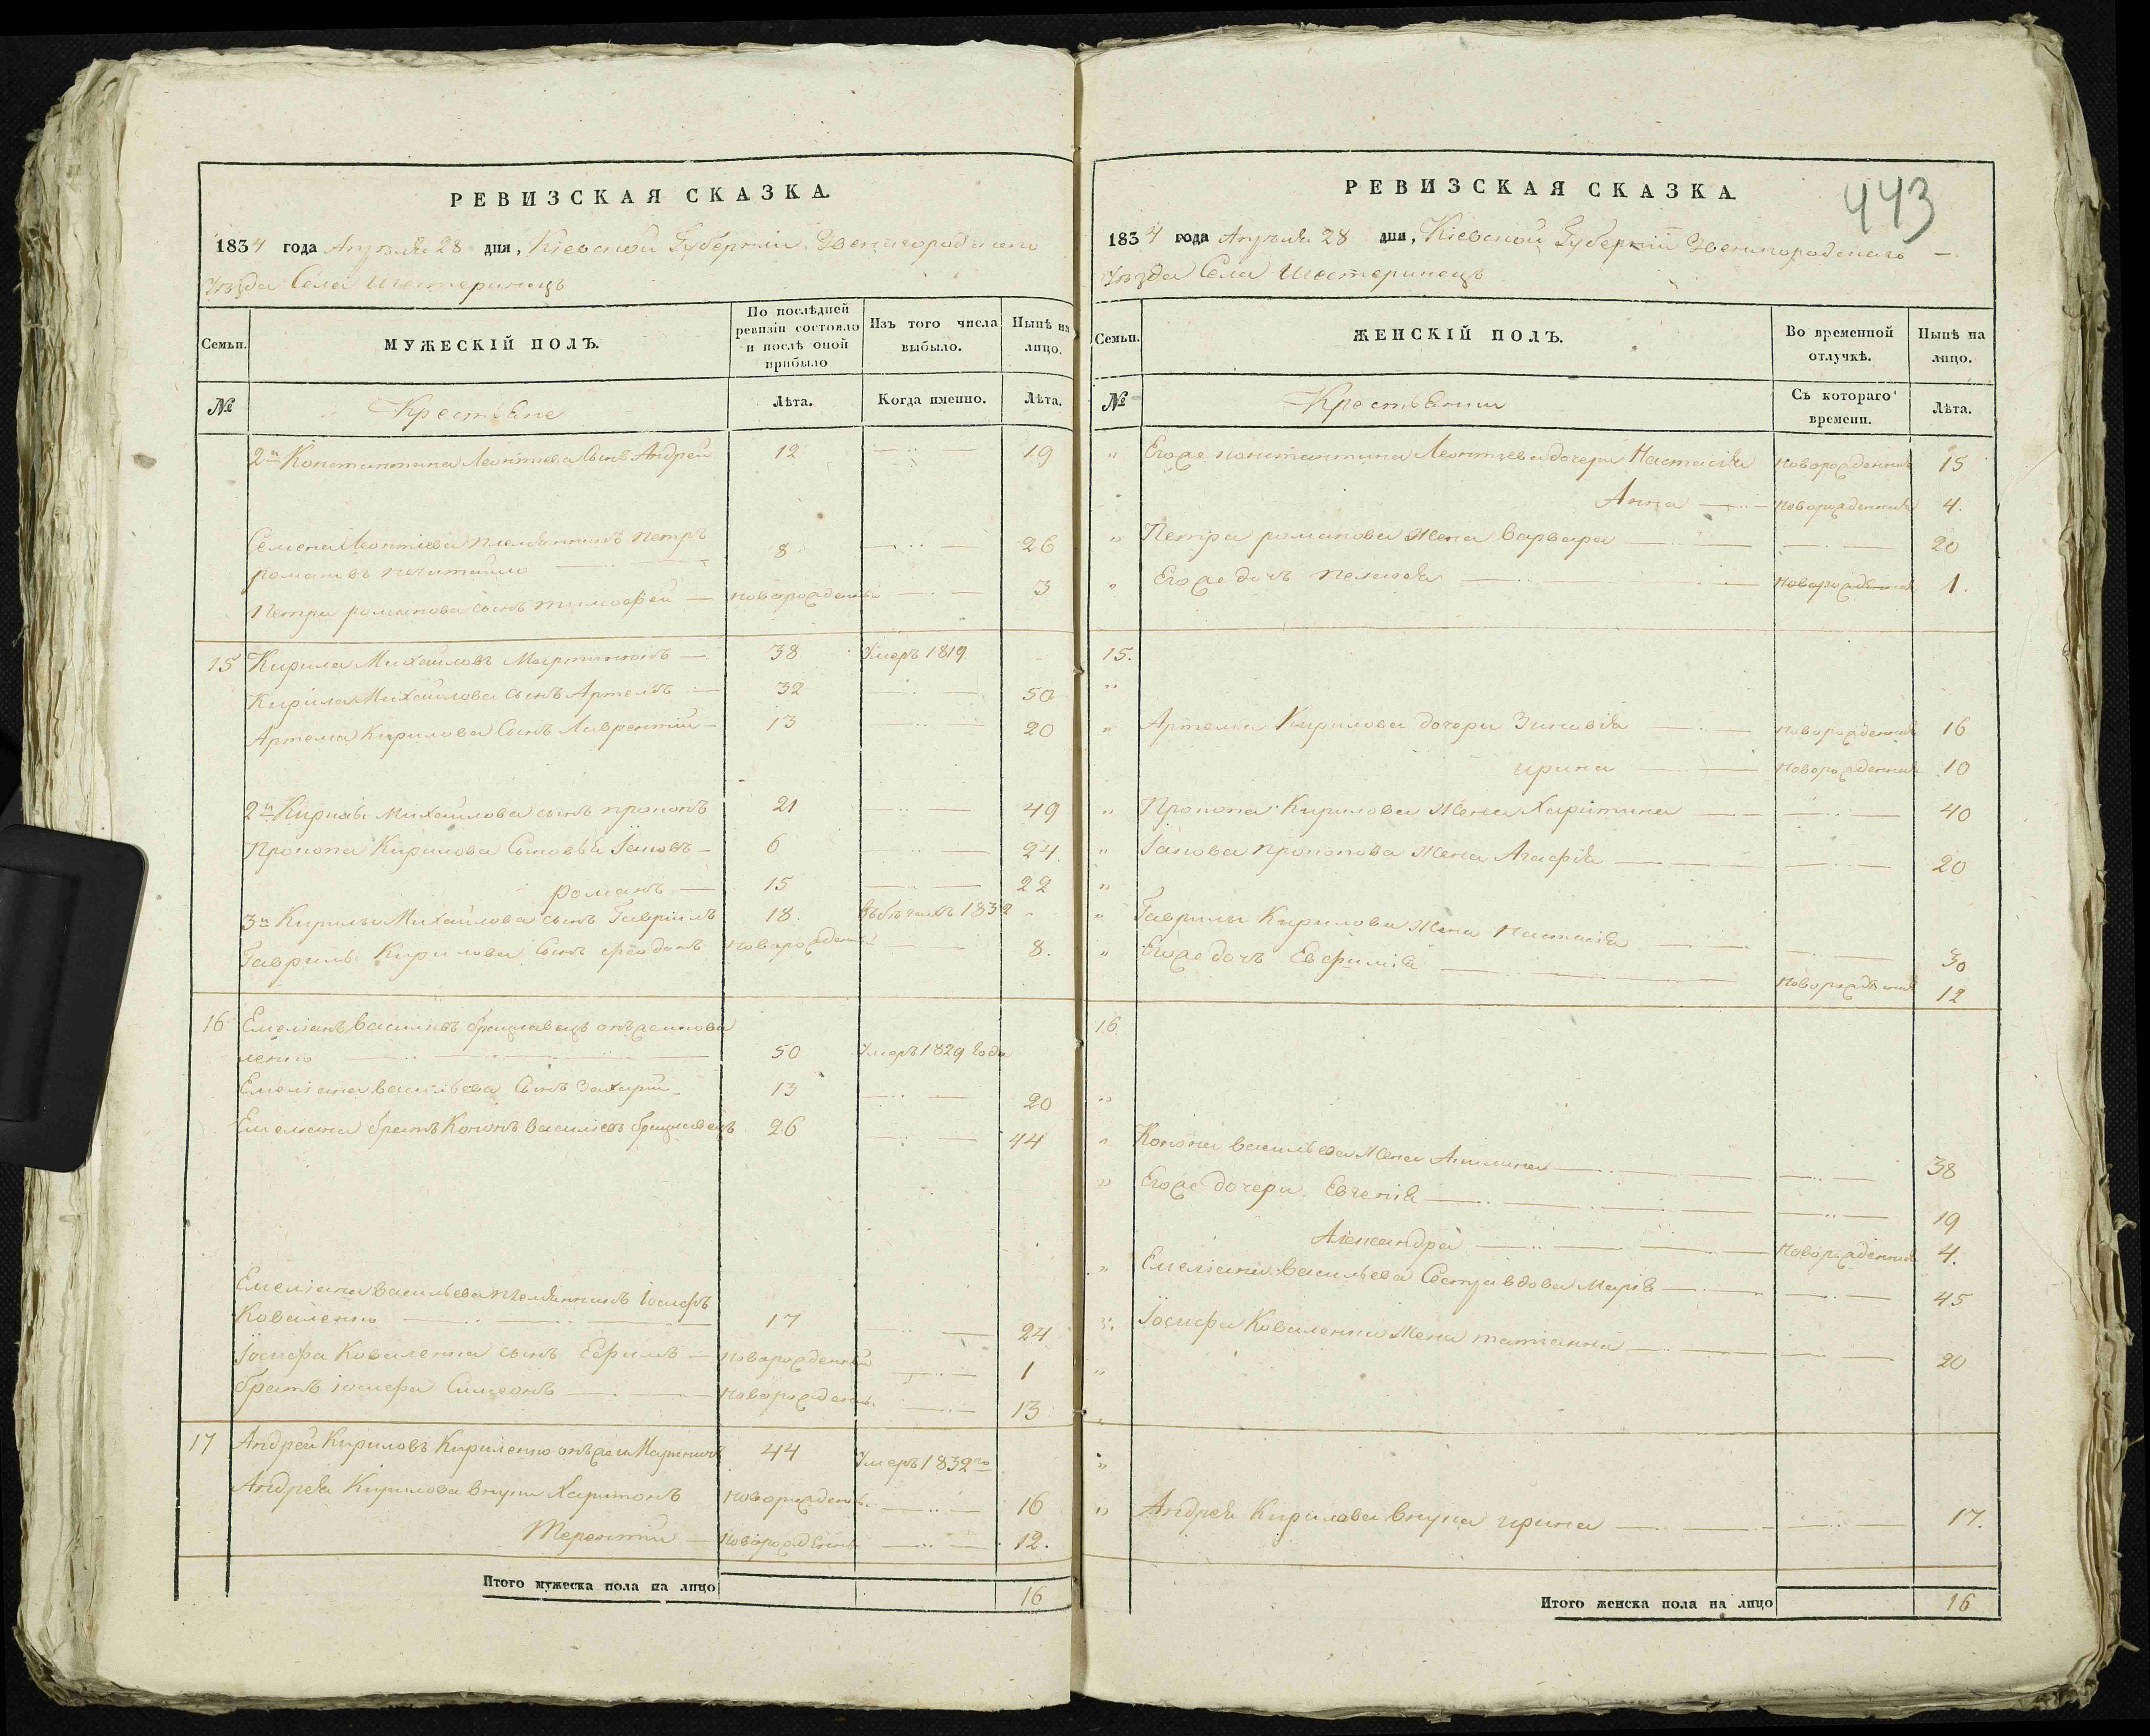 РЕВИЗСКАЯ СКАЗКА.
1834 года Апреля 28 дня, Кіевской Губерніи Звенигородскаго
Уезда Села Шестеринецъ
Семьи.
МУЖЕСКІЙ ПОЛЪ.
По послѣдней ревизіи состояло и послѣ оной прибыло
Изъ того числа выбыло.
Нынѣ на лицо.
№
Крестьяне
Лѣта.
Когда именно.
Лѣта.
2й Константина Леонтіева Сынъ Андрей 12 19
Семена Леонтіева племянникъ Петръ
романовъ 8 26
Петра романова сынъ тимофей новорожденный 3
15 Кирила Михайловъ Мартинюкъ 38 Умеръ 1819
Кирила Михайлова сынъ Артемъ 32 50
Артема Кирилова Сынъ Лаврентій 13 20
2й Кирилы Михайлова сынъ прокопъ 21 49
Прокопа Кирилова Сыновья Іаковъ 6 24.
романъ 15 22
3й Кирилы Михайлова сынъ Гавріилъ 18. въ бѣгахъ 1832
Гаврилы Кирилова Сынъ феодонъ новорожденный 8.
16 Емеліанъ Василіевъ браславецъ онъже
ленко 50 Умеръ 1829 года
Емеліана васильева Сынъ Захарій 13 20
Емеліана братъ Кононъ василіевъ браславецъ 26 44
Емеліана васильева племянникъ Іосифъ
Коваленко 17 24
Іосифа Коваленка сынъ Ефимъ новорожденный 1
братъ іосифа Симеонъ новорожденъ. 13
17 Андрей Кириловъ Кириленко онъже и Мартинюкъ 44 Умеръ 1832го
Андрея Кирилова внуки Харитонъ новорожденъ. 16
Терентій новорожденъ 12.
Итого мужеска пола на лицо 16
443
РЕВИЗСКАЯ СКАЗКА
1834 года Апреля 28 дня, Кіевской Губерніи Звенигородскаго
Уезда Села Шестеринецъ
Семьи.
ЖЕНСКІЙ ПОЛЪ.
Во временной отлучкѣ.
Нынѣ на лицо.
№
Крестьянки
Съ котораго времени.
Лѣта.
" Егоже константина Леонтіева дочери Настасія новорожденная 15
Анна новорожденная 4.
" Петра романова жена Варвара 20
" Егоже дочь пелагея новорожденная 1.
15.
"
" Артема Кирилова дочери Зиновія новорожденная 16
ирина новорожденная 10
" Прокопа Кирилова жена Харитина 40
" Іакова прокопова жена Агафія 20
"
" Гаврилы Кирилова жена Настасія 30
" Егоже дочь Евфимія новорожденная 12
16.
"
" Конона васильева жена Акилина 38
" Егоже дочери Евгенія 19
Александра новорожденная 4.
" Емеліана васильева Сестра вдова Марія 45
" Іосифа Коваленка жена татіанна 20
"
"
"
" Андрея Кирилова внука ирина 17.
Итого женска пола на лицо 16